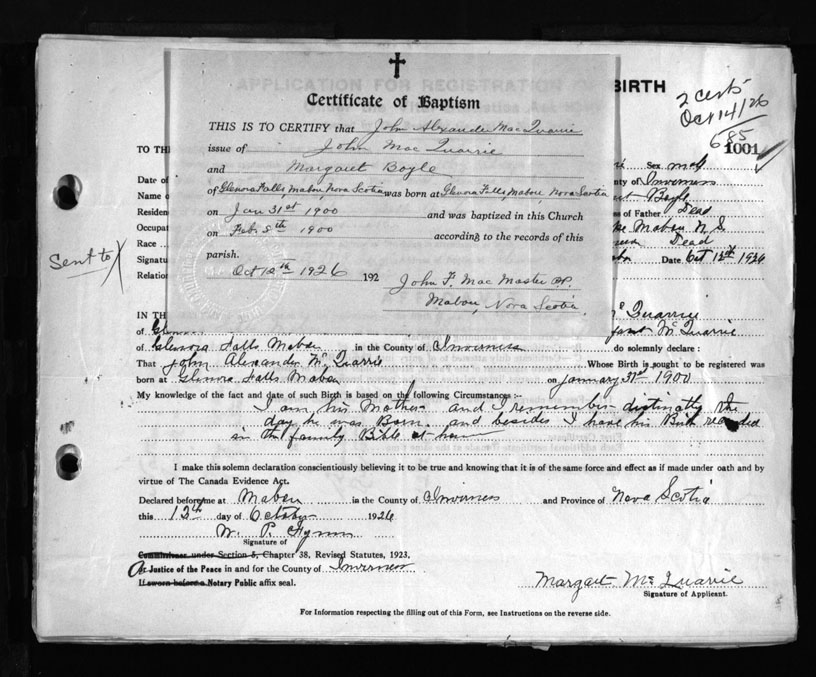 APPLICATION FOR REGISTRATION OF BIRTH
2 certs
Oct 14/26
685
1001
Certificate of Baptism
THIS IS TO CERTIFY that John Alexander MacQuarrie
issue of John MacQuarrie
and Margaret Boyle
of Glenora Falls, Mabou, Nova Scotia was born at Glenora Falls, Mabou, Nova Scotia
on Jan 31st 1900 and was baptized in this Church
on Feb. 5th 1900 according to the records of this
parish.
Oct 12th 1926 192
John F. MacMaster P.P.
Mabou, Nova Scotia
TO TH
Sex
ty of Inverness
Date of
Name o
Boyle
Residen
ss of Father Dead
Occupat
Mabou N.S.
Race
Dead
Signatu
Date Oct 12th 1926
Relation
Sent to X
IN TH
McQuarrie
of Glenora
McQuarrie
of Glenora Falls Mabou in the County of Inverness do solemnly declare :
That John Alexander McQuarrie Whose Birth is sought to be registered was
born at Glenora Falls Mabou on January 31st 1900
My knowledge of the fact and date of such Birth is based on the following Circumstances :—
I am his Mother and I remember distinctly the
day he was Born. and besides I have his Birth recorded
in the family Bible at home
I make this solemn declaration conscientiously believing it to be true and knowing that it is of the same force and effect as if made under oath and by
virtue of The Canada Evidence Act.
Declared before me at Mabou in the County of Inverness and Province of Nova Scotia
this 12th day of October 1926
W. P.
Signature of
Commissioner under Section 5, Chapter 38, Revised Statutes, 1923,
Or Justice of the Peace in and for the County of Inverness
If sworn before a Notary Public affix seal.
Margaret McQuarrie
Signature of Applicant.
For Information respecting the filling out of this Form, see Instructions on the reverse side.